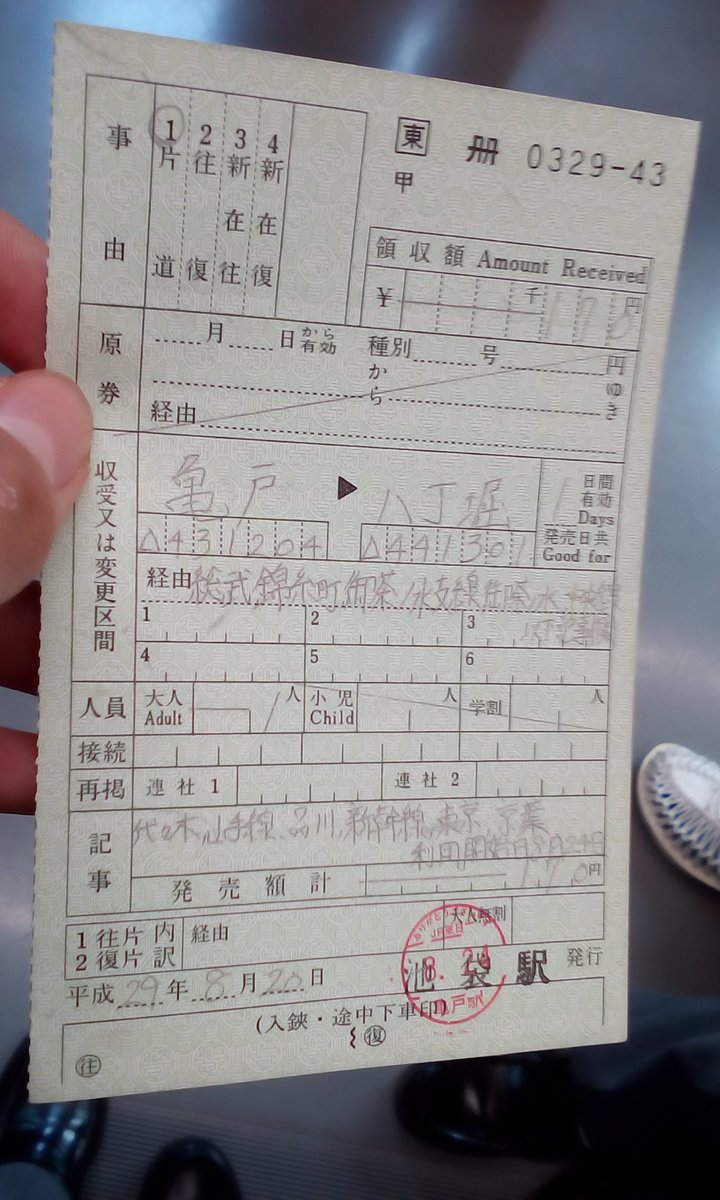 東 冊 0329-43
甲
事由
1 片道
2 往復
3 新在往
4 新在復
領収額 Amount Received
¥ 千 170 円
原券
月 日 から有効 種別 号 円
から ゆき
経由
収受又は変更区間
亀戸 ▶ 八丁堀
△431204 △441301
1 日間有効 Days
発売日共 Good for
経由 総武錦糸町御茶ノ水支線御茶ノ水 中央東
1 2 3
4 5 6
人員 大人 Adult 1人 小児 Child 人 学割 人
接続
再掲 連社 1 連社 2
記事
代々木,山手線,品川,新幹線,東京 京葉
利用開始日8月24日
発売額計 170円
1 往片 内 経由 大人無割
2 復片 訳
平成29年8月20日 池袋駅 発行
JR東日本
8.24
亀戸駅
(入鋏・途中下車印)
往 復